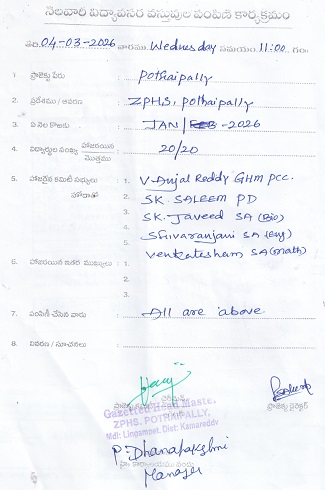 నెలవారి విద్యావసర వస్తువుల పంపిణి కార్యక్రమం
తేది. 04-03-2026 వారము Wednesday సమయం 11:00 గం
1. ప్రాజెక్టు పేరు : Pothaipally
2. ప్రదేశము / ఆవరణ : ZPHS, Pothaipally
3. ఏ నెల కొరకు : JAN/FEB-2026
4. విద్యార్థుల సంఖ్య హాజరయిన మొత్తము : 20/20
5. హాజరైన కమిటీ సభ్యులు 1. V. Anjal Reddy GHM PCC.
హోదాతో 2. SK. SALEEM PD
3. SK. Javeed SA (Bio)
4. Shivaranjani SA (Eng)
5. Venkatesham SA (Math)
6. హాజరయిన ఇతర ముఖ్యులు : 1.
2.
3.
7. పంపిణీ చేసిన వారు : All are above
8. వివరణ / సూచనలు :
Gazetted Head Maste.
ZPHS. POTHAIPALLY,
Mdl: Lingampet, Dist: Kamareddy
ప్రాజెక్టు డైరెక్టర్
P. Dhanalakshmi
Manager